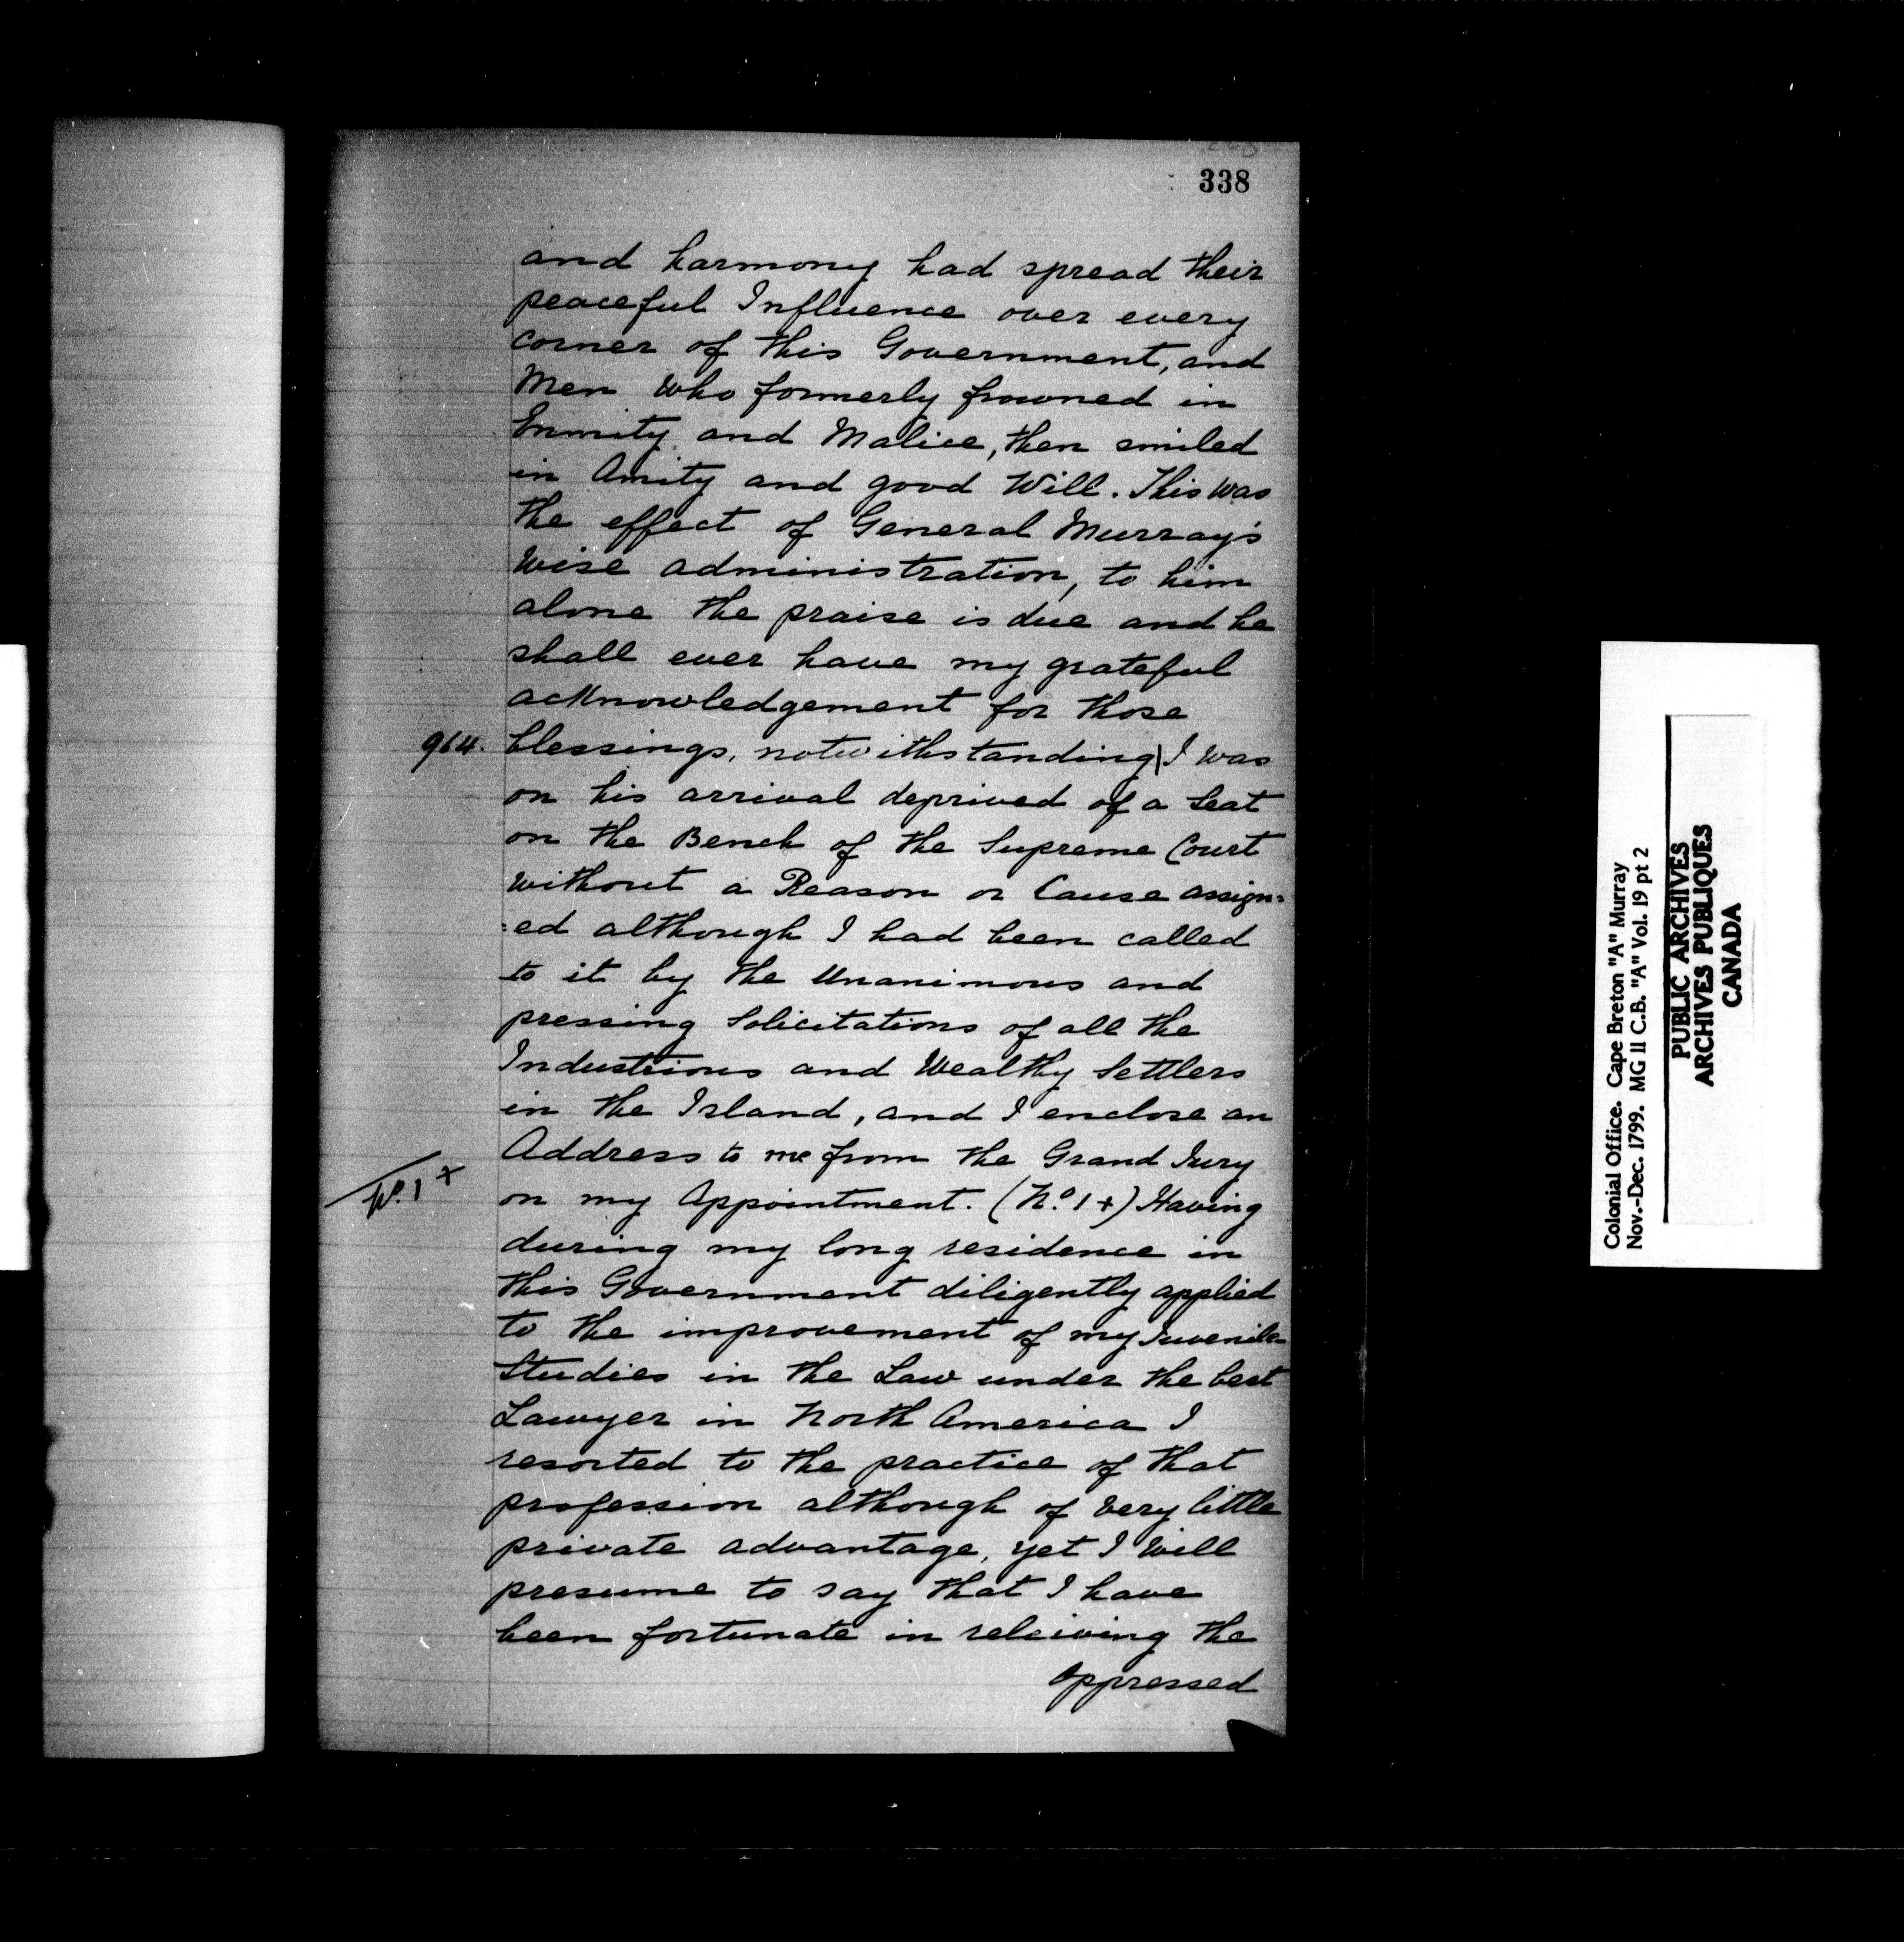 338
and harmony had spread their
peaceful Influence over every
corner of this Government, and
Men who formerly frowned in
Enmity and Malice, then smiled
in Amity and good Will. This was
the effect of General Murray's
wise administration, to him
alone the praise is due and he
shall ever have my grateful
acknowledgement for those
964. blessings, notwithstanding | I was
on his arrival deprived of a Seat
on the Bench of the Supreme Court
without a Reason or Cause assign=
=ed although I had been called
to it by the Unanimous and
pressing Solicitations of all the
Industrious and Wealthy Settlers
in the Island, and I enclose an
Address to me from the Grand Jury
No. 1 +
on my Appointment. (No. 1 +) Having
during my long residence in
this Government diligently applied
to the improvement of my Juvenile
Studies in the Law under the best
Lawyer in North America I
resorted to the practice of that
profession although of very little
private advantage, yet I will
presume to say that I have
been fortunate in releiving the
oppressed
Colonial Office. Cape Breton "A" Murray
Nov.-Dec. 1799. MG 11 C.B. "A" Vol. 19 pt 2
PUBLIC ARCHIVES
ARCHIVES PUBLIQUES
CANADA